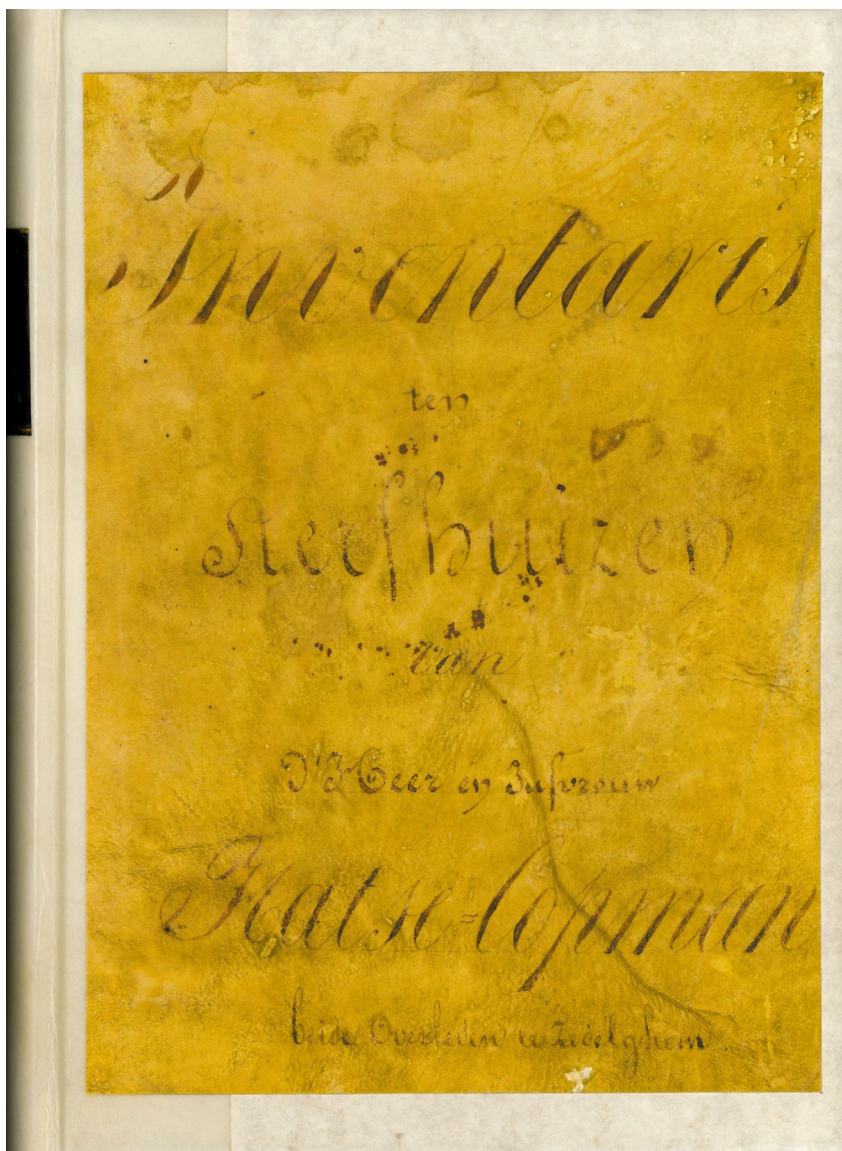 Inventaris
ten
Sterfhuizen
van
D'Heer en Jufvrouw
Hatse=Copman
beide Overleden te Zedelghem